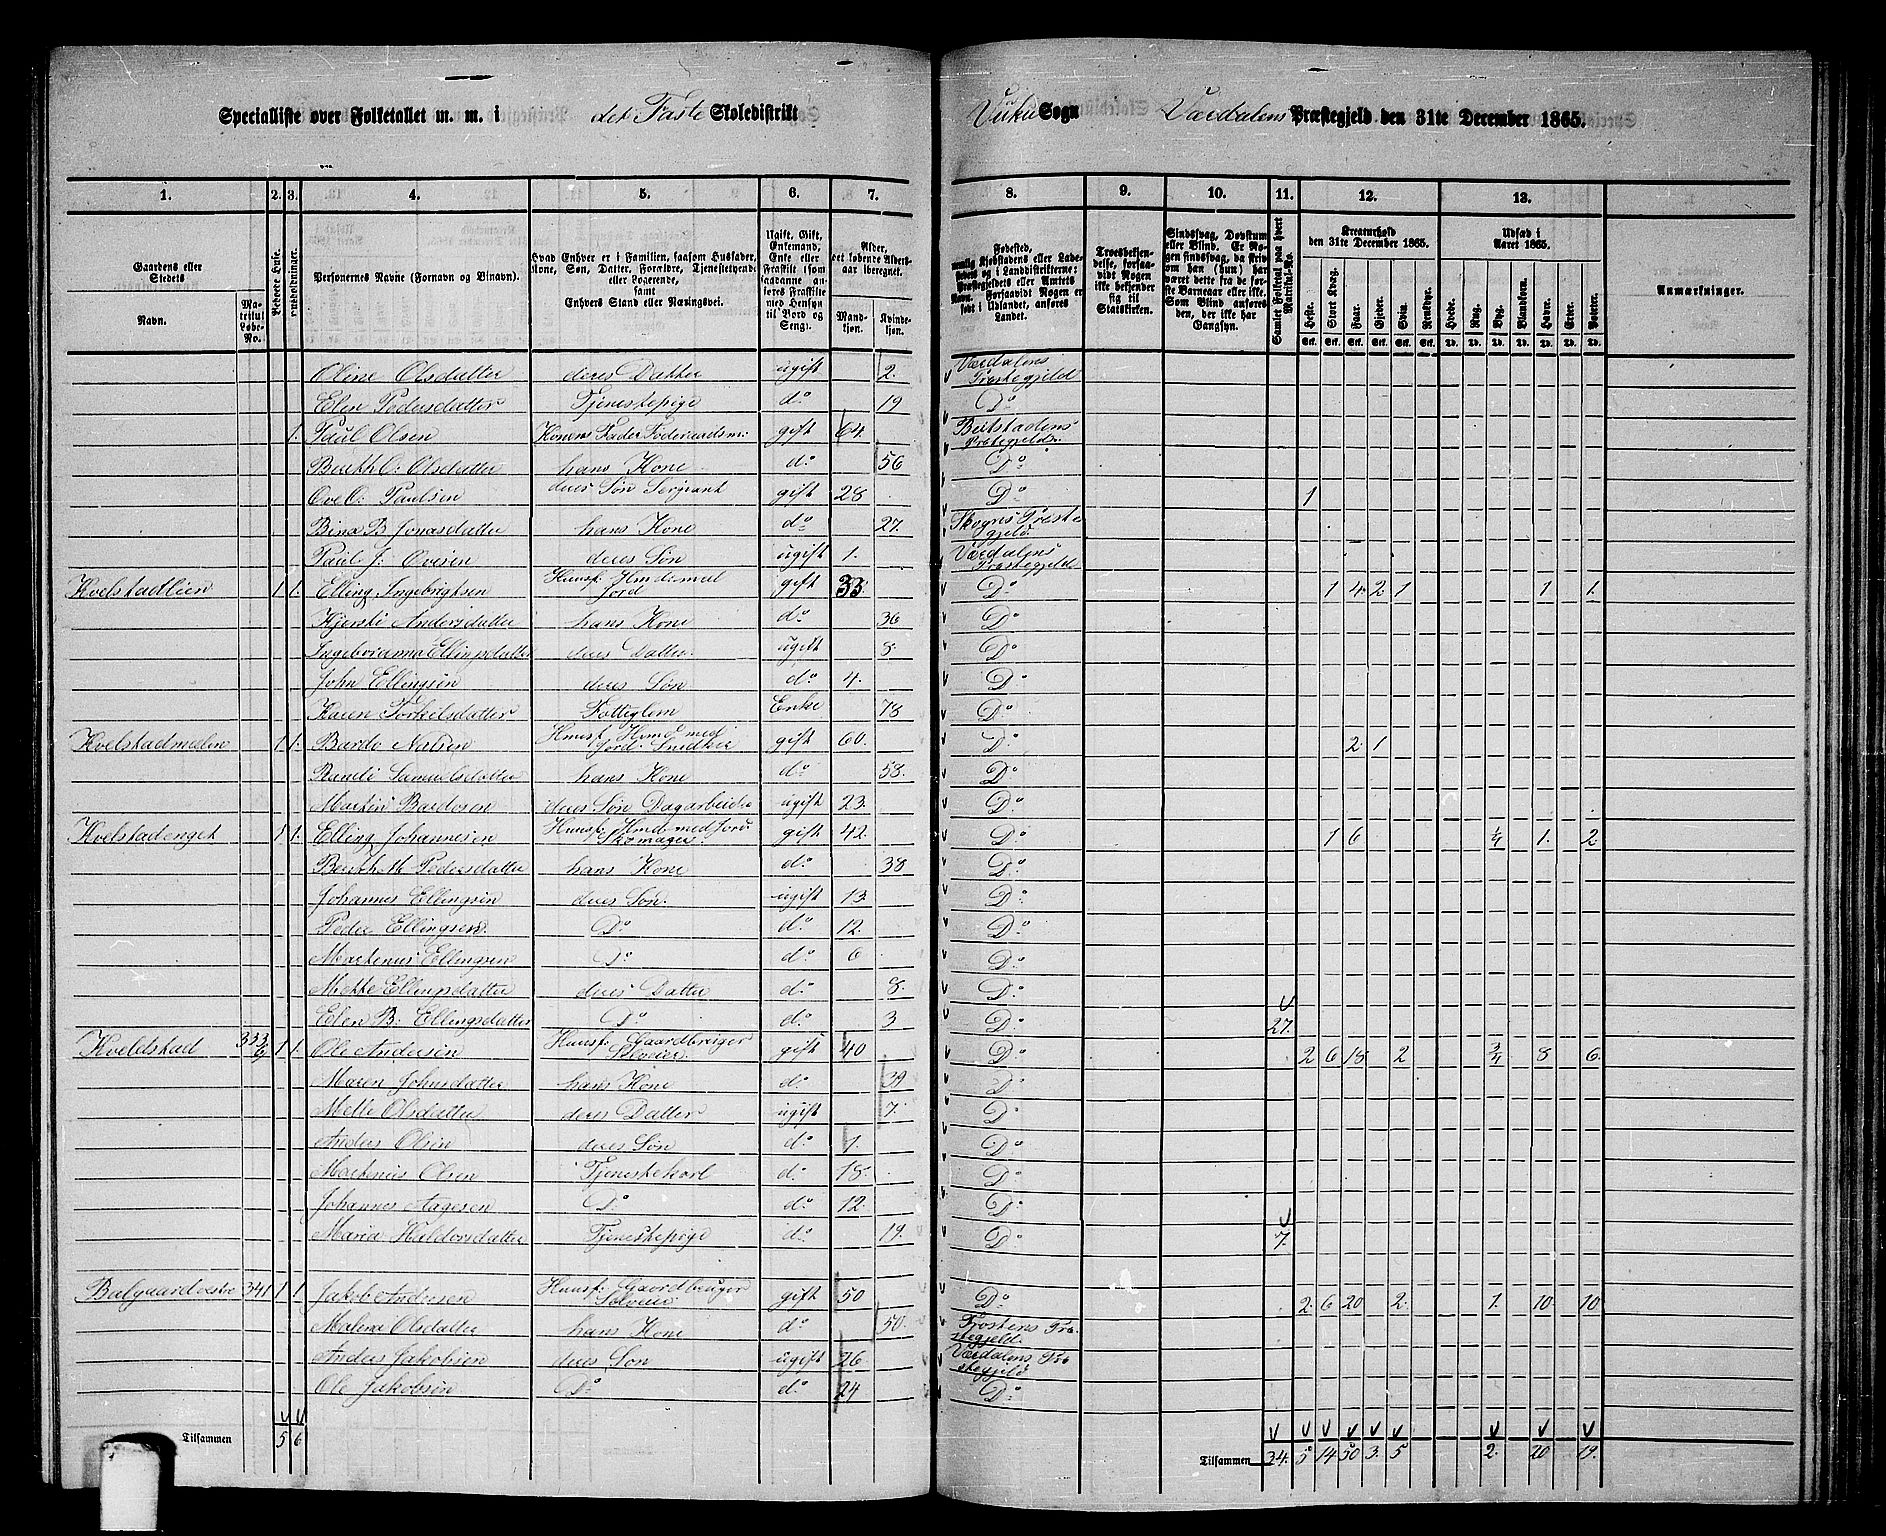 Specialliste over Folketallet m. m. i det Faste Skoledistrikt Vuku Sogn Værdalens Præstegjeld den 31te December 1865.
1. 2. 3. 4. 5. 6. 7. 8. 9. 10. 11. 12. 13.
Gaardens eller Stedets Navn. Matrikul Løbe-No. Beboede Huse. Huusholdninger. Personernes Navne (Fornavn og Tilnavn).
Hvad Enhver er i Familien, saasom Husfader, Kone, Søn, Datter, Forældre, Tjenestetyende eller Logerende, samt Enhvers Stand eller Næringsvei.
Ugift, Gift, Enkemand, Enke eller Fraskilt (som saadanne anføres Fraskilte med Hensyn til Bord og Seng).
Alder, det løbende Alders-aar iberegnet. Mandkjøn. Kvindekjøn.
Troesbekjendelse, forsaavidt Nogen ikke bekjender sig til Statskirken.
Sindssvag, Døvstum eller Blind.
Samlet Folketal paa hvert Matrikul-No.
Kreaturhold den 31te December 1865. Heste. Stort Kvæg. Faar. Gjeder. Sviin. Rensdyr.
Udsæd i Aaret 1865. Hvede. Rug. Byg. Blandkorn. Havre. Erter. Poteter.
Anmærkninger.
Oline Olsdatter deres Datter ugift 2. Værdalens Præstegjeld
Elen Pedersdatter Tjenestepige do 19 Do
1. Paul Olsen Konens Fader Føderaadsm: gift 64. Beitstadens Præstegjeld
Bereth O: Olsdatter hans Kone do 56 Do
Ove O: Paulsen deres Søn Sergeant gift 28 Do 1
Bina B. Jonasdatter hans Kone do 27. Skogns Præstegjeld
Paul J: Ovesen deres Søn ugift 1. Værdalens Præstegjeld
Kvelstadlien 1 1. Elling Ingebrigtsen Huusf. Hmd. med Jord gift 33. Do 1 4 2 1 1 1.
Kjersti Andersdatter hans Kone do 36 Do
Ingebrianna Ellingsdatter deres Datter ugift 8 Do
John Ellingsen deres Søn do 4. Do
Karen Torkilsdatter Fattiglem Enke 78 Do
Kvelstadmelen 1 1. Bardo Nilsen Huusf. Hmd med Jord. Snedker gift 60. Do 2. 1
Randi Samuelsdatter hans Kone do 58. Do
Martin Bardosen deres Søn Dagarbeider ugift 23. Do
Kvelstadenget 1 1. Elling Johannesen Huusf. Hmd med Jord Skomager gift 42. Do 1 6 1/4 1. 2
Bereth M Pedersdatter hans Kone do 38 Do
Johannes Ellingsen deres Søn ugift 13. Do
Peder Ellingsen Do do 12. Do
Martinus Ellingsen Do do 6 Do
Mette Ellingsdatter deres Datter do 8. Do
Elen B: Ellingsdatter Do do 3 Do 27.
Kveldstad 1 1. Ole Andersen Huusf. Gaardbruger Selveier. gift 40 Do 2 6 18 2 3/4 8 6.
Maren Johnsdatter hans Kone do 39 Do
Mette Olsdatter deres Datter ugift 7. Do
Anders Olsen deres Søn do 1. Do
Martinus Olsen Tjenestekarl do 18 Do
Johannes Aagesen Do do 12. Do
Maria Haldorsdatter Tjenestepige do 19. Do 7.
Balgaard østre 341 1 1 Jakob Andersen Huusf. Gaardbruger Selveier gift 50 Do 2. 6 20 2. 1. 10. 10
Malena Olsdatter hans Kone do 50. Frostens Præstegjeld.
Anders Jakobsen deres Søn ugift 26 Værdalens Præstegjeld
Ole Jakobsen Do do 24 Do
Tilsammen 5 6 Tilsammen 34. 5 14 50 3. 5 2. 20 19.